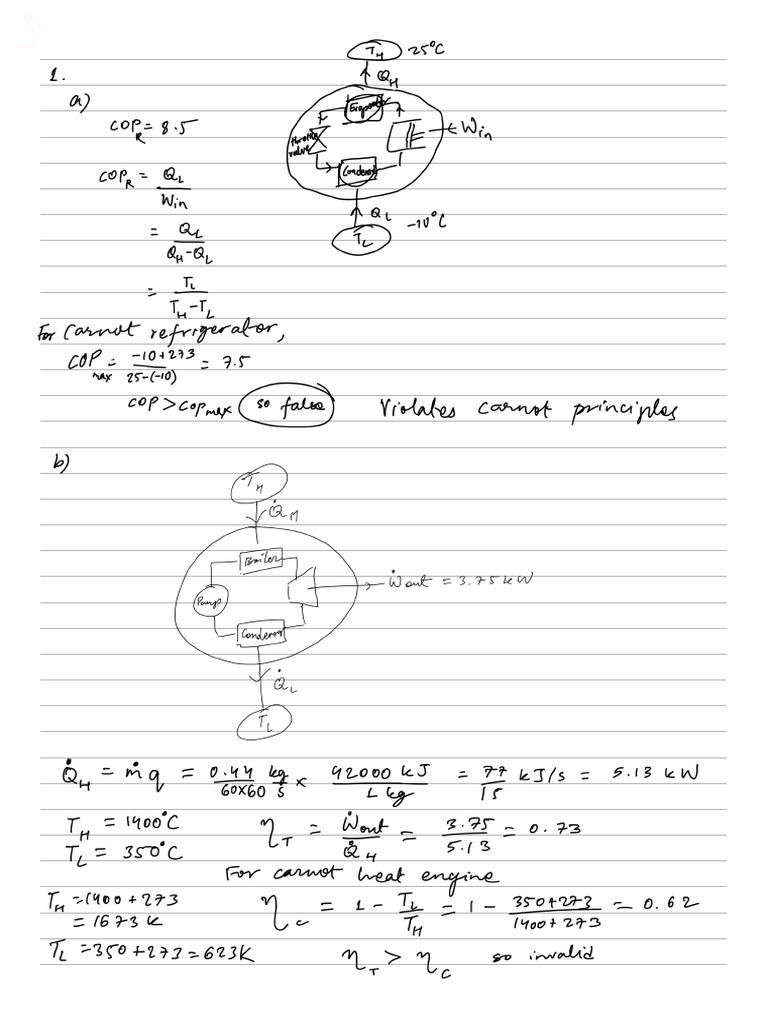 1.
a)
T_H 25°C
Q_H
Evaporator
throttle valve
← Win
Condenser
Q_L
T_L -10°C
COP_R = 8.5
COP_R = Q_L / Win
= Q_L / (Q_H - Q_L)
= T_L / (T_H - T_L)
For Carnot refrigerator,
COP_max = (-10+273) / (25-(-10)) = 7.5
COP > COP_max so false Violates carnot principles
b)
T_H
Q̇_H
Boiler
Pump
Ẇout = 3.75 kW
Condenser
Q̇_L
T_L
Q̇_H = ṁq = 0.44/(60×60) kg/s × 42000 kJ / 1 kg = 77/15 kJ/s = 5.13 kW
T_H = 1400°C η_T = Ẇout / Q̇_H = 3.75 / 5.13 = 0.73
T_L = 350°C
For carnot heat engine
T_H = 1400 + 273
= 1673 K η_c = 1 - T_L / T_H = 1 - (350+273) / (1400+273) = 0.62
T_L = 350 + 273 = 623K η_T > η_c so invalid